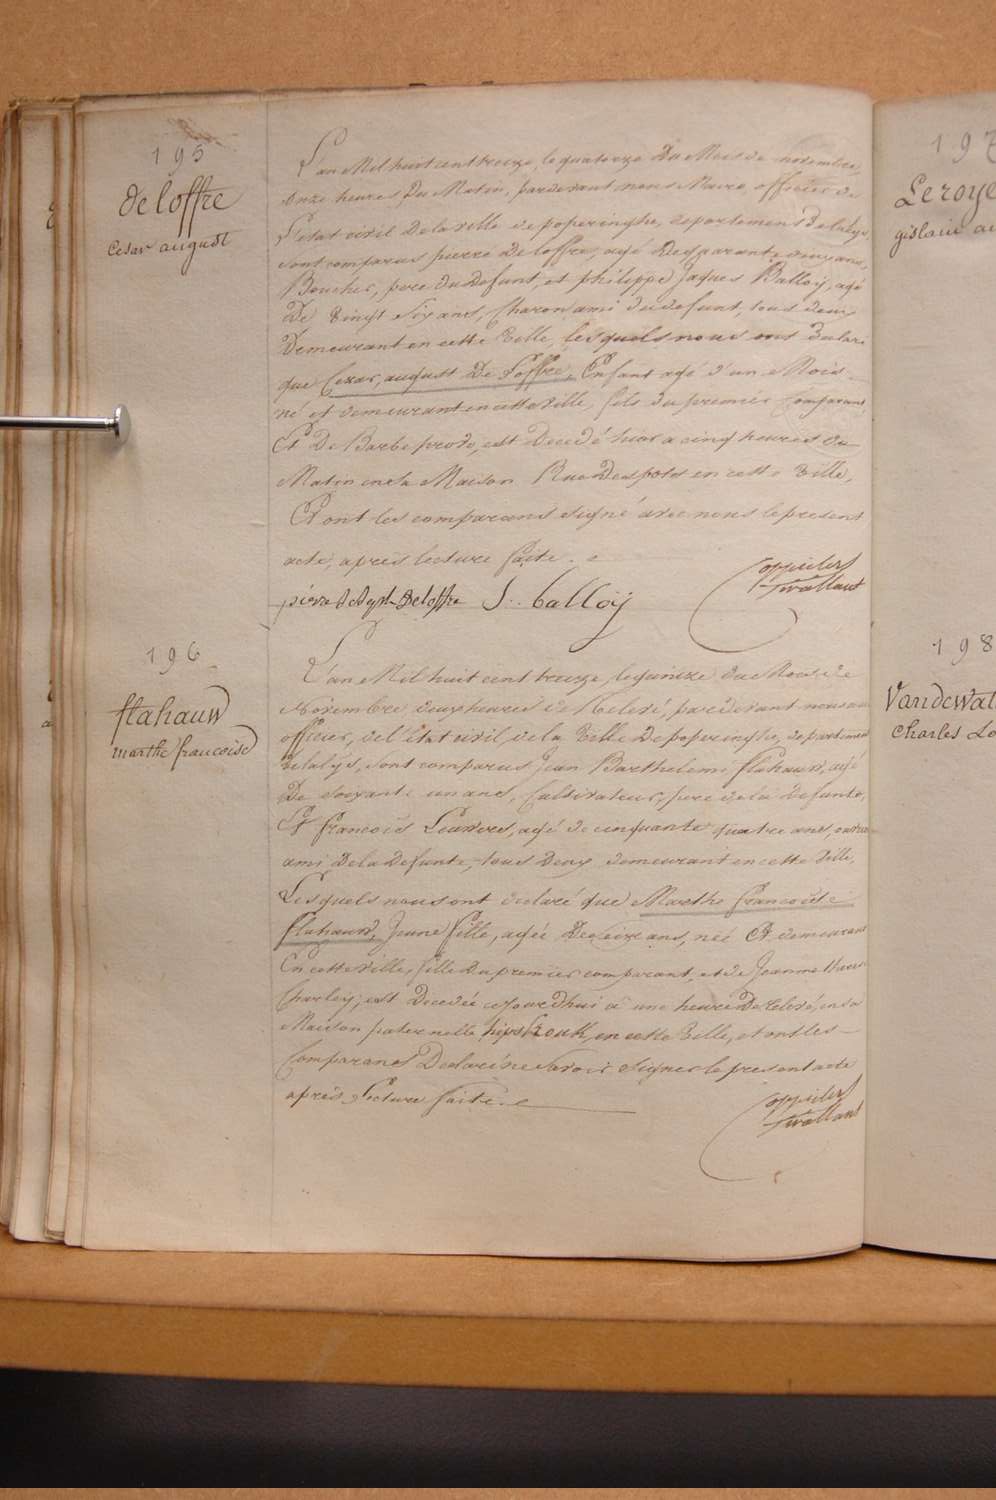 195
deloffre
Cesar august
L'an Mil huit cent treize, le quatorze Du Mois de novembre,
onze heures Du Matin, pardevant nous Maire, officier de
l'état civil De la ville de poperinghe, departement De la lys,
sont comparus pierre Deloffre, agé De quarante deux ans,
Boucher, pere du defunt, et philippe Jaques Balloij, agé
De vingt Six ans, Charon ami du defunt, tous deux
Demeurant en cette Ville, lesquels nous ont Declaré
que Cezar, august De Loffre, Enfant agé d'un Mois
né et demeurant en cette ville, fils du premier Comparant
Et De Barbe prove, est Decedé hier a cinq heures du
Matin en sa Maison Rue Des pots en cette Ville,
Et ont les comparans signé avec nous le present
acte, après lecture faite.
pierre Deloffre J. balloij
vaillant
196
flahauw
marthe francoise
L'an Mil huit cent treize le quinze du Mois de
Novembre deux heures de Relevé, pardevant nous
officier, de l'état civil, de la Ville De poperinghe, departement
de la lys, sont comparus Jean Barthelemi flahauw, agé
De soixante un ans, Cultivateur, pere de la defunte,
Et francois agé de cinquante quatre ans,
ami De la defunte, tous deux demeurant en cette Ville,
Lesquels nous ont declaré que Marthe francoise
flahauw, Jeune fille, agée De seize ans, née Et demeurant
En cette ville, fille Du premier comparant, et de Jeanne
Charley, est Decedée cejourdhui a une heure De relevé, en sa
Maison paternelle hipshouk, en cette Ville, et ont les
Comparans Declaré ne Savoir Signer le present acte
après Lecture faite.
vaillant
197
Leroye
gislain au
198
Vandewal
Charles Lo